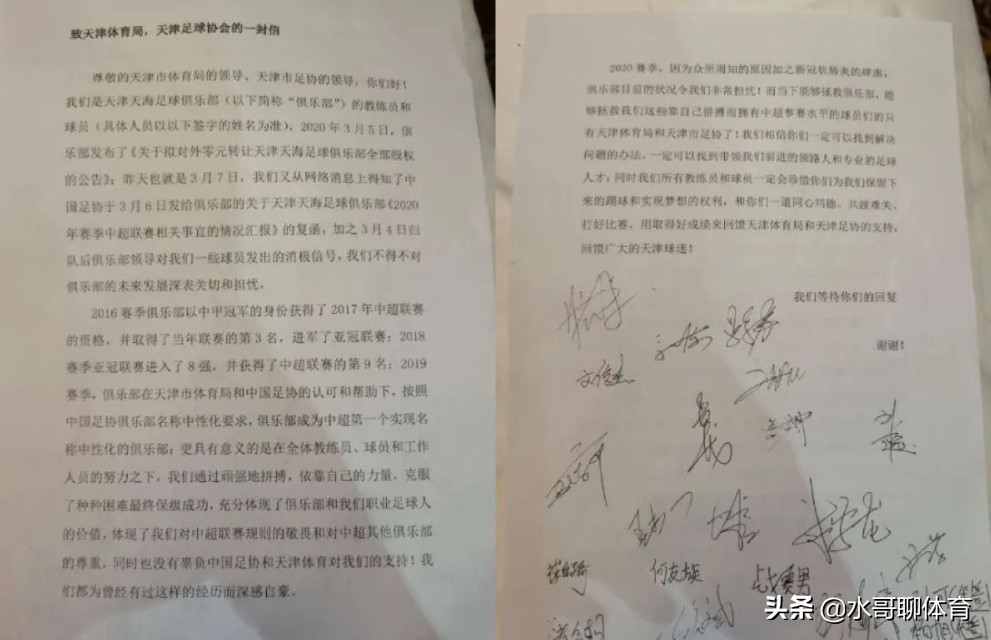 致天津体育局，天津足球协会的一封信
尊敬的天津市体育局的领导、天津市足协的领导，你们好！
我们是天津天海足球俱乐部（以下简称“俱乐部”）的教练员和
球员（具体人员以以下签字的姓名为准），2020年3月5日，俱
乐部发布了《关于拟对外零元转让天津天海足球俱乐部全部股权
的公告》；昨天也就是3月7日，我们又从网络消息上得知了中
国足协于3月6日发给俱乐部的关于天津天海足球俱乐部《2020
年赛季中超联赛相关事宜的情况汇报》的复函，加之3月4日归
队后俱乐部领导对我们一些球员发出的消极信号，我们不得不对
俱乐部的未来发展深表关切和担忧。
2016赛季俱乐部以中甲冠军的身份获得了2017年中超联赛
的资格，并取得了当年联赛的第3名，进军了亚冠联赛；2018
赛季亚冠联赛进入了8强，并获得了中超联赛的第9名；2019
赛季，俱乐部在天津市体育局和中国足协的认可和帮助下，按照
中国足协俱乐部名称中性化要求，俱乐部成为中超第一个实现名
称中性化的俱乐部；更具有意义的是在全体教练员、球员和工作
人员的努力之下，我们通过顽强地拼搏，依靠自己的力量，克服
了种种困难最终保级成功，充分体现了俱乐部和我们职业足球人
的价值，体现了我们对中超联赛规则的敬畏和对中超其他俱乐部
的尊重，同时也没有辜负中国足协和天津体育对我们的支持！我
们都为曾经有过这样的经历而深感自豪。
2020赛季，因为众所周知的原因加之新冠状肺炎的肆虐，
俱乐部目前的状况令我们非常担忧！而当下能够拯救俱乐部，能
够拯救我们这些靠自己拼搏而拥有中超参赛水平的球员们的只
有天津体育局和天津市足协了！我们相信你们一定可以找到解决
问题的办法，一定可以找到带领我们前进的领路人和专业的足球
人才；同时我们所有教练员和球员一定会珍惜你们为我们保留下
来的踢球和实现梦想的权利，和你们一道同心同德、共渡难关、
打好比赛，用取得好成绩来回馈天津体育局和天津足协的支持，
回馈广大的天津球迷！
我们等待你们的回复
谢谢！
何友族
头条 @水哥聊体育